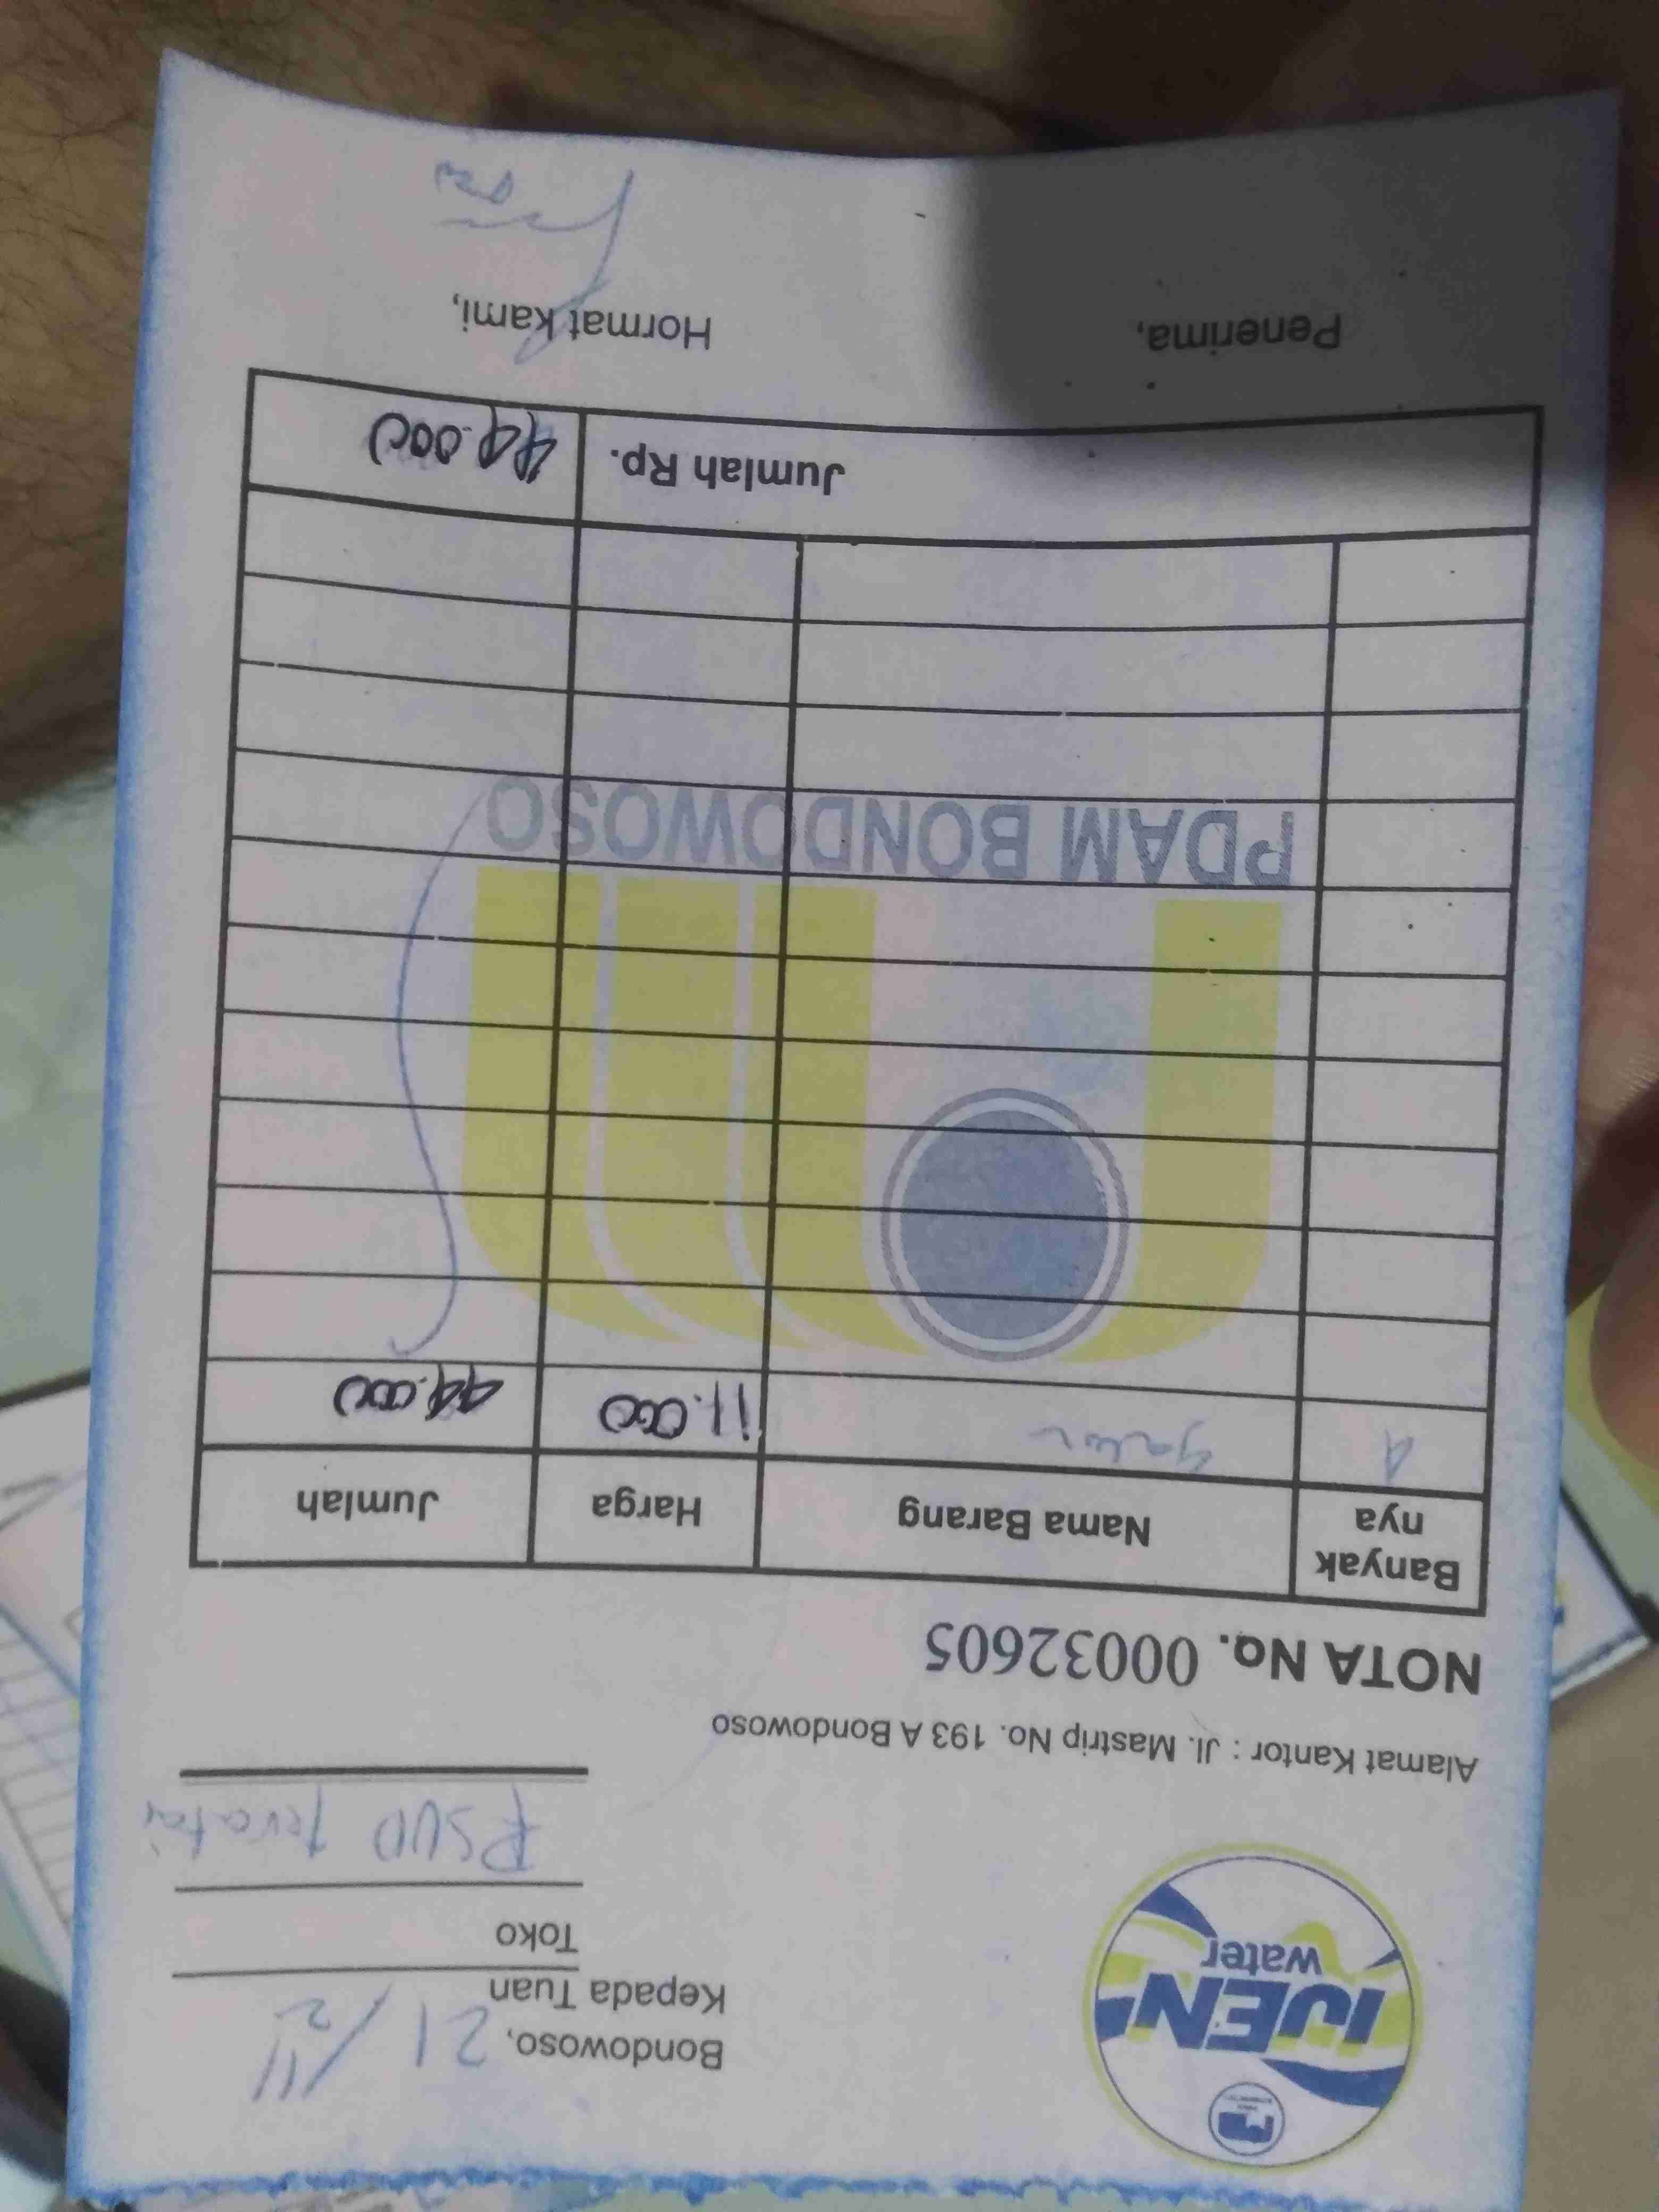 IJEN
water
Bondowoso, 21/11
Kepada Tuan
Toko
RSUD
Alamat Kantor : Jl. Mastrip No. 193 A Bondowoso
NOTA No. 00032605
Banyak nya Nama Barang Harga Jumlah
4 galon 11.000 44.000
PDAM BONDOWOSO
Jumlah Rp. 44.000
Penerima, Hormat kami,